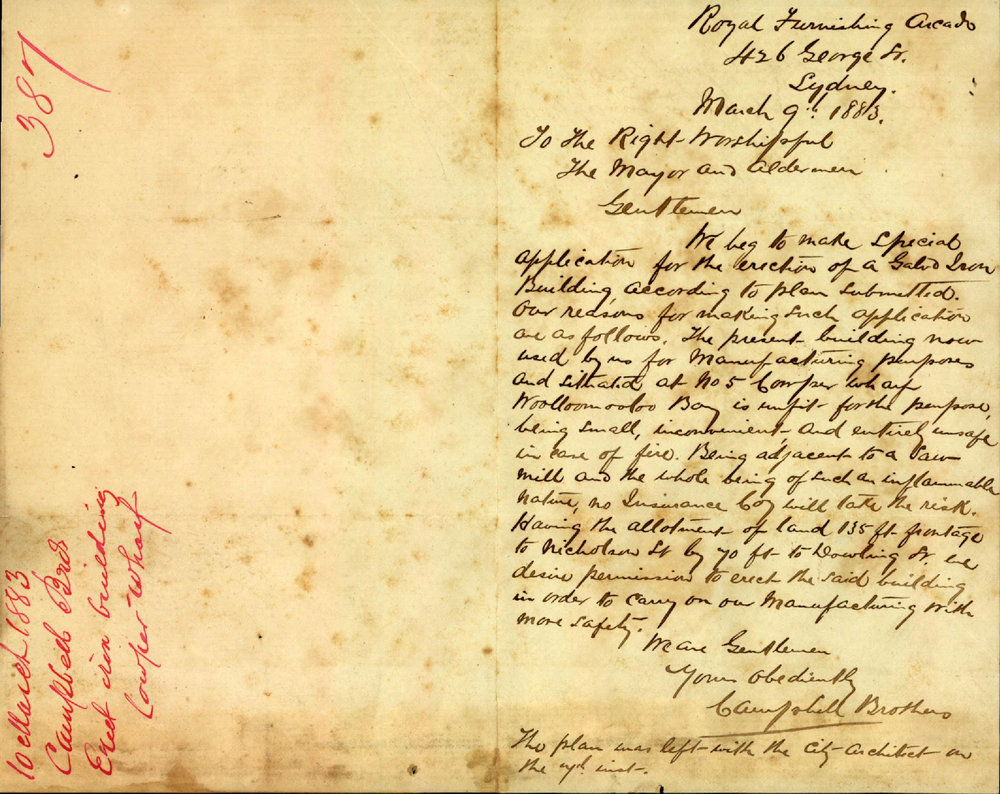 387
10 March 1883
Campbell Bros
Erect iron building
Cowper Wharf
Royal Furnishing Arcade
426 George St.
Sydney.
March 9th 1883.
To The Right Worshipful
The Mayor and Aldermen
Gentlemen
We beg to make special
application for the erection of a Galvd Iron
Building, according to plan submitted.
Our reasons for making such application
are as follows. The present building now
used by us for Manufacturing purposes
and situated at No 5 Cowper wharf
Woolloomooloo Bay is unfit for the purpose,
being small, inconvenient, and entirely unsafe
in case of fire. Being adjacent to a Saw
mill and the whole being of such an inflammable
nature, no Insurance Coy will take the risk.
Having the allotment of land 135 ft frontage
to Nicholson St by 70 ft to Dowling St. we
desire permission to erect the said building
in order to carry on our Manufacturing with
more safety.
We are Gentlemen
Yours Obediently
Campbell Brothers
The plan was left with the City Architect on
the 7th inst.